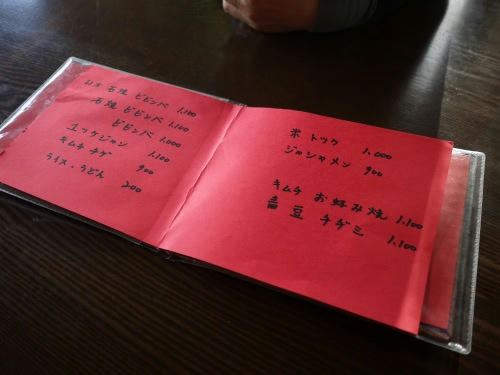 石焼 ビビンバ 1.100
石焼 ビビンバ 1.100
ビビンバ 1.000
ユッケジャン 1.100
キムチ チゲ 900
ライス・うどん 200
米 トック 1.000
ジャジャメン 900
キムチ お好み焼 1.100
豆 チヂミ 1.100